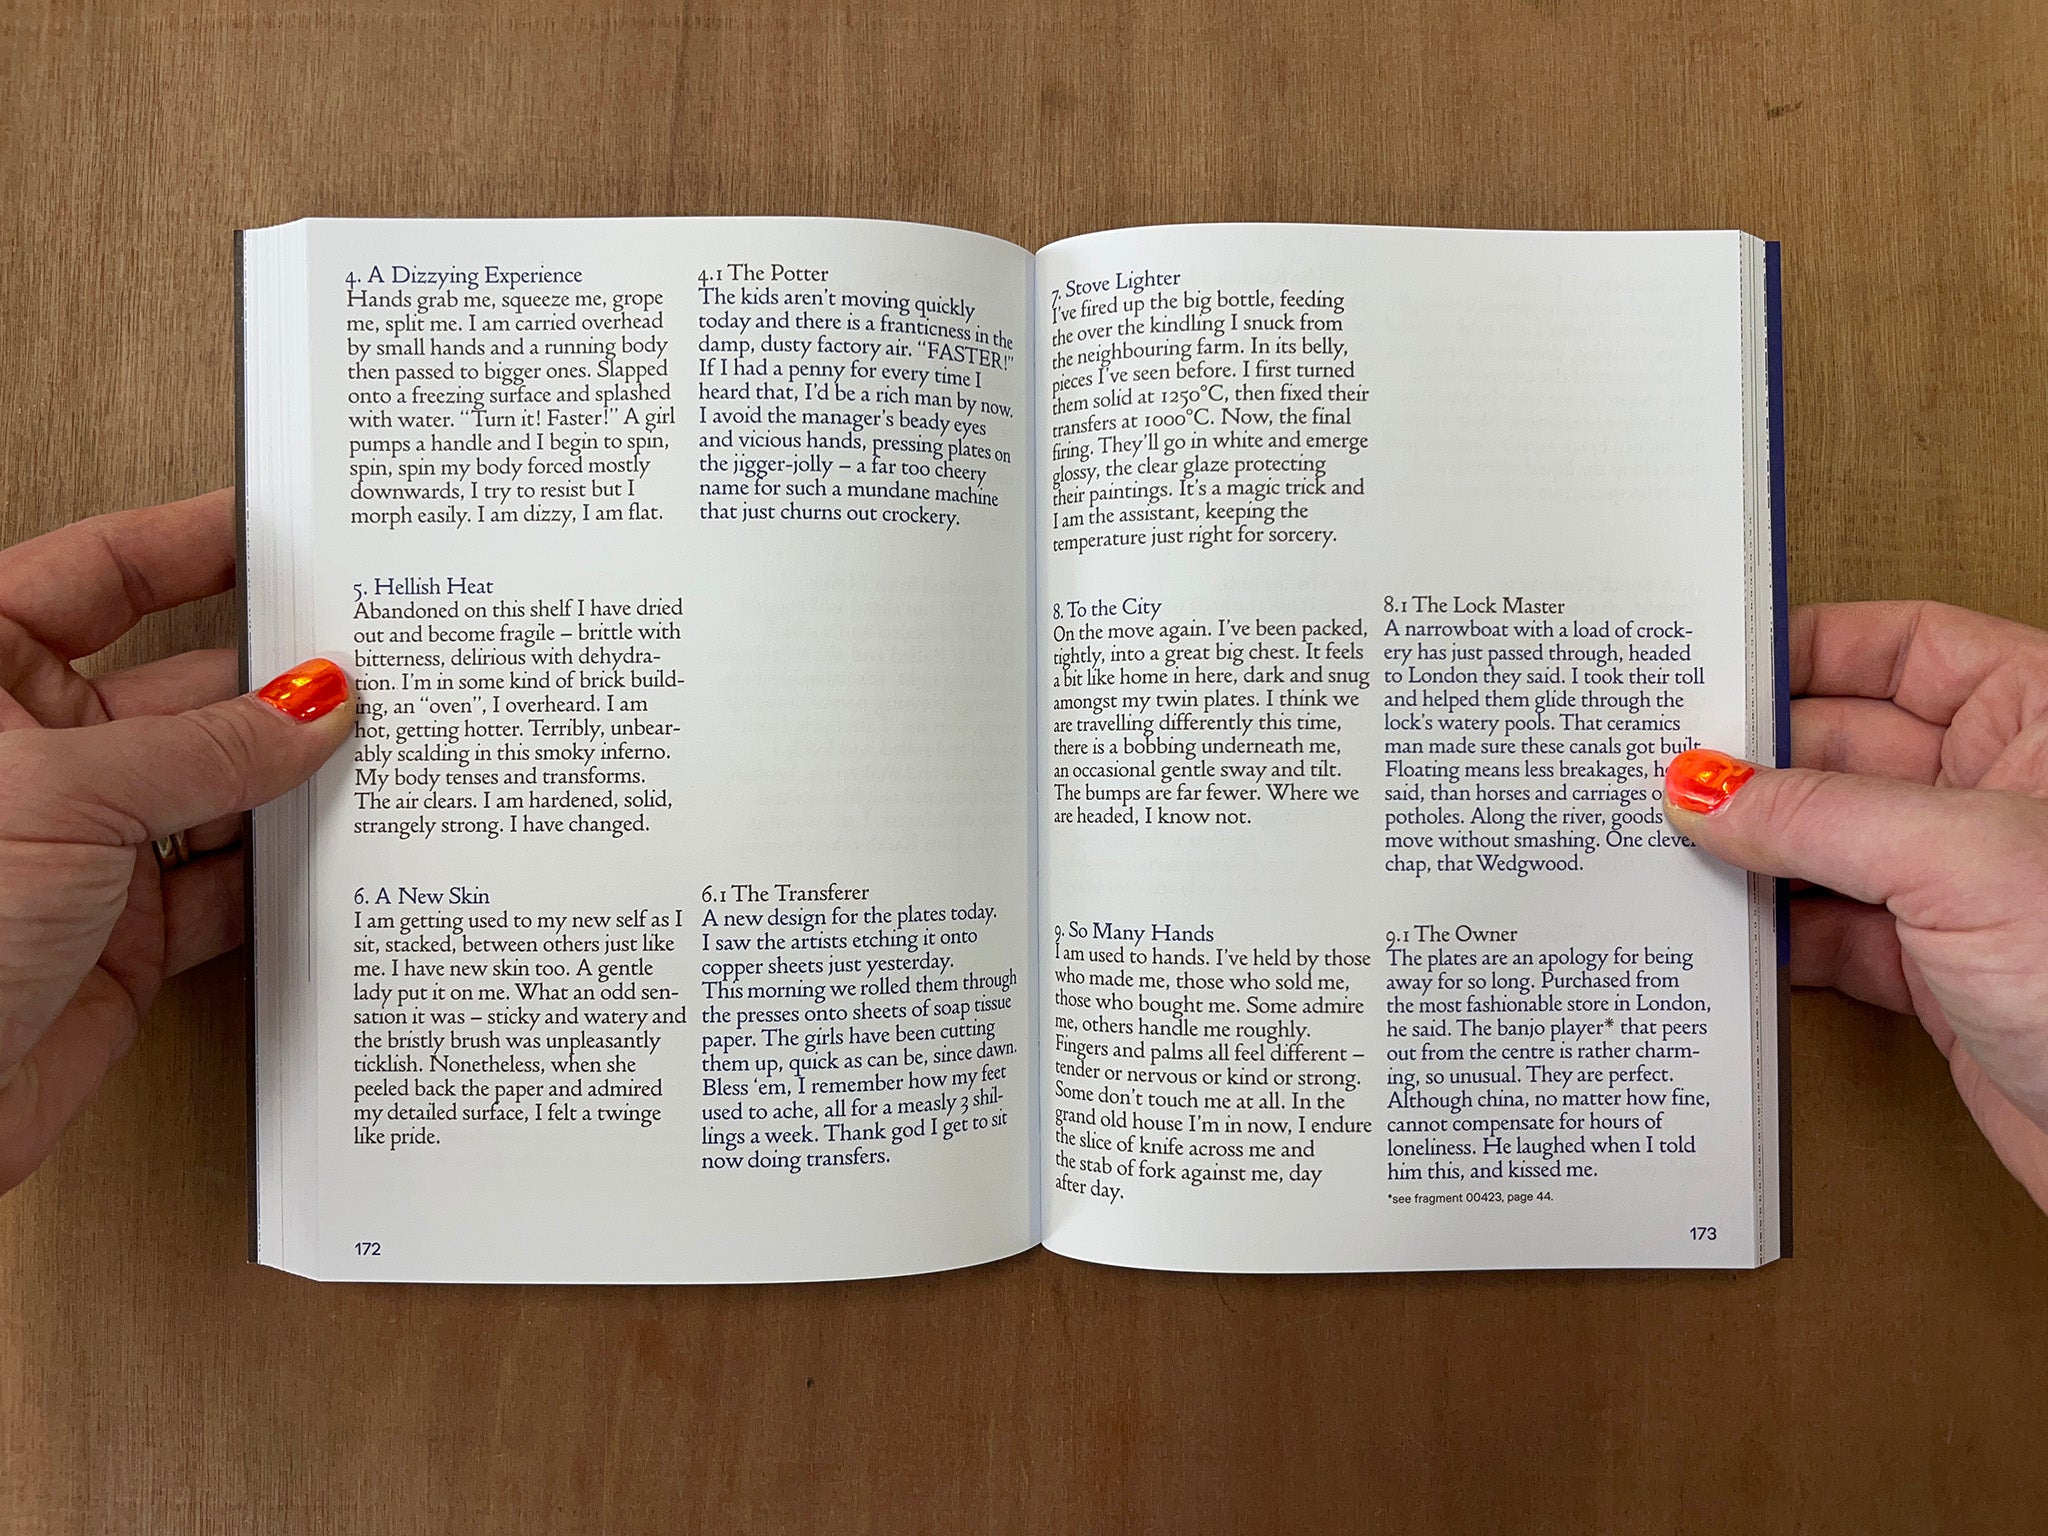 4. A Dizzying Experience
Hands grab me, squeeze me, grope
me, split me. I am carried overhead
by small hands and a running body
then passed to bigger ones. Slapped
onto a freezing surface and splashed
with water. “Turn it! Faster!” A girl
pumps a handle and I begin to spin,
spin, spin my body forced mostly
downwards, I try to resist but I
morph easily. I am dizzy, I am flat.
4.1 The Potter
The kids aren’t moving quickly
today and there is a franticness in the
damp, dusty factory air. “FASTER!”
If I had a penny for every time I
heard that, I’d be a rich man by now.
I avoid the manager’s beady eyes
and vicious hands, pressing plates on
the jigger-jolly – a far too cheery
name for such a mundane machine
that just churns out crockery.
5. Hellish Heat
Abandoned on this shelf I have dried
out and become fragile – brittle with
bitterness, delirious with dehydra-
tion. I’m in some kind of brick build-
ing, an “oven”, I overheard. I am
hot, getting hotter. Terribly, unbear-
ably scalding in this smoky inferno.
My body tenses and transforms.
The air clears. I am hardened, solid,
strangely strong. I have changed.
6. A New Skin
I am getting used to my new self as I
sit, stacked, between others just like
me. I have new skin too. A gentle
lady put it on me. What an odd sen-
sation it was – sticky and watery and
the bristly brush was unpleasantly
ticklish. Nonetheless, when she
peeled back the paper and admired
my detailed surface, I felt a twinge
like pride.
6.1 The Transferer
A new design for the plates today.
I saw the artists etching it onto
copper sheets just yesterday.
This morning we rolled them through
the presses onto sheets of soap tissue
paper. The girls have been cutting
them up, quick as can be, since dawn.
Bless ‘em, I remember how my feet
used to ache, all for a measly 3 shil-
lings a week. Thank god I get to sit
now doing transfers.
172
7. Stove Lighter
I’ve fired up the big bottle, feeding
the over the kindling I snuck from
the neighbouring farm. In its belly,
pieces I’ve seen before. I first turned
them solid at 1250°C, then fixed their
transfers at 1000°C. Now, the final
firing. They’ll go in white and emerge
glossy, the clear glaze protecting
their paintings. It’s a magic trick and
I am the assistant, keeping the
temperature just right for sorcery.
8. To the City
On the move again. I’ve been packed,
tightly, into a great big chest. It feels
a bit like home in here, dark and snug
amongst my twin plates. I think we
are travelling differently this time,
there is a bobbing underneath me,
an occasional gentle sway and tilt.
The bumps are far fewer. Where we
are headed, I know not.
8.1 The Lock Master
A narrowboat with a load of crock-
ery has just passed through, headed
to London they said. I took their toll
and helped them glide through the
lock’s watery pools. That ceramics
man made sure these canals got built.
Floating means less breakages,
said, than horses and carriages
potholes. Along the river, goods
move without smashing. One clever
chap, that Wedgwood.
9. So Many Hands
I am used to hands. I’ve held by those
who made me, those who sold me,
those who bought me. Some admire
me, others handle me roughly.
Fingers and palms all feel different –
tender or nervous or kind or strong.
Some don’t touch me at all. In the
grand old house I’m in now, I endure
the slice of knife across me and
the stab of fork against me, day
after day.
9.1 The Owner
The plates are an apology for being
away for so long. Purchased from
the most fashionable store in London,
he said. The banjo player* that peers
out from the centre is rather charm-
ing, so unusual. They are perfect.
Although china, no matter how fine,
cannot compensate for hours of
loneliness. He laughed when I told
him this, and kissed me.
*see fragment 00423, page 44.
173